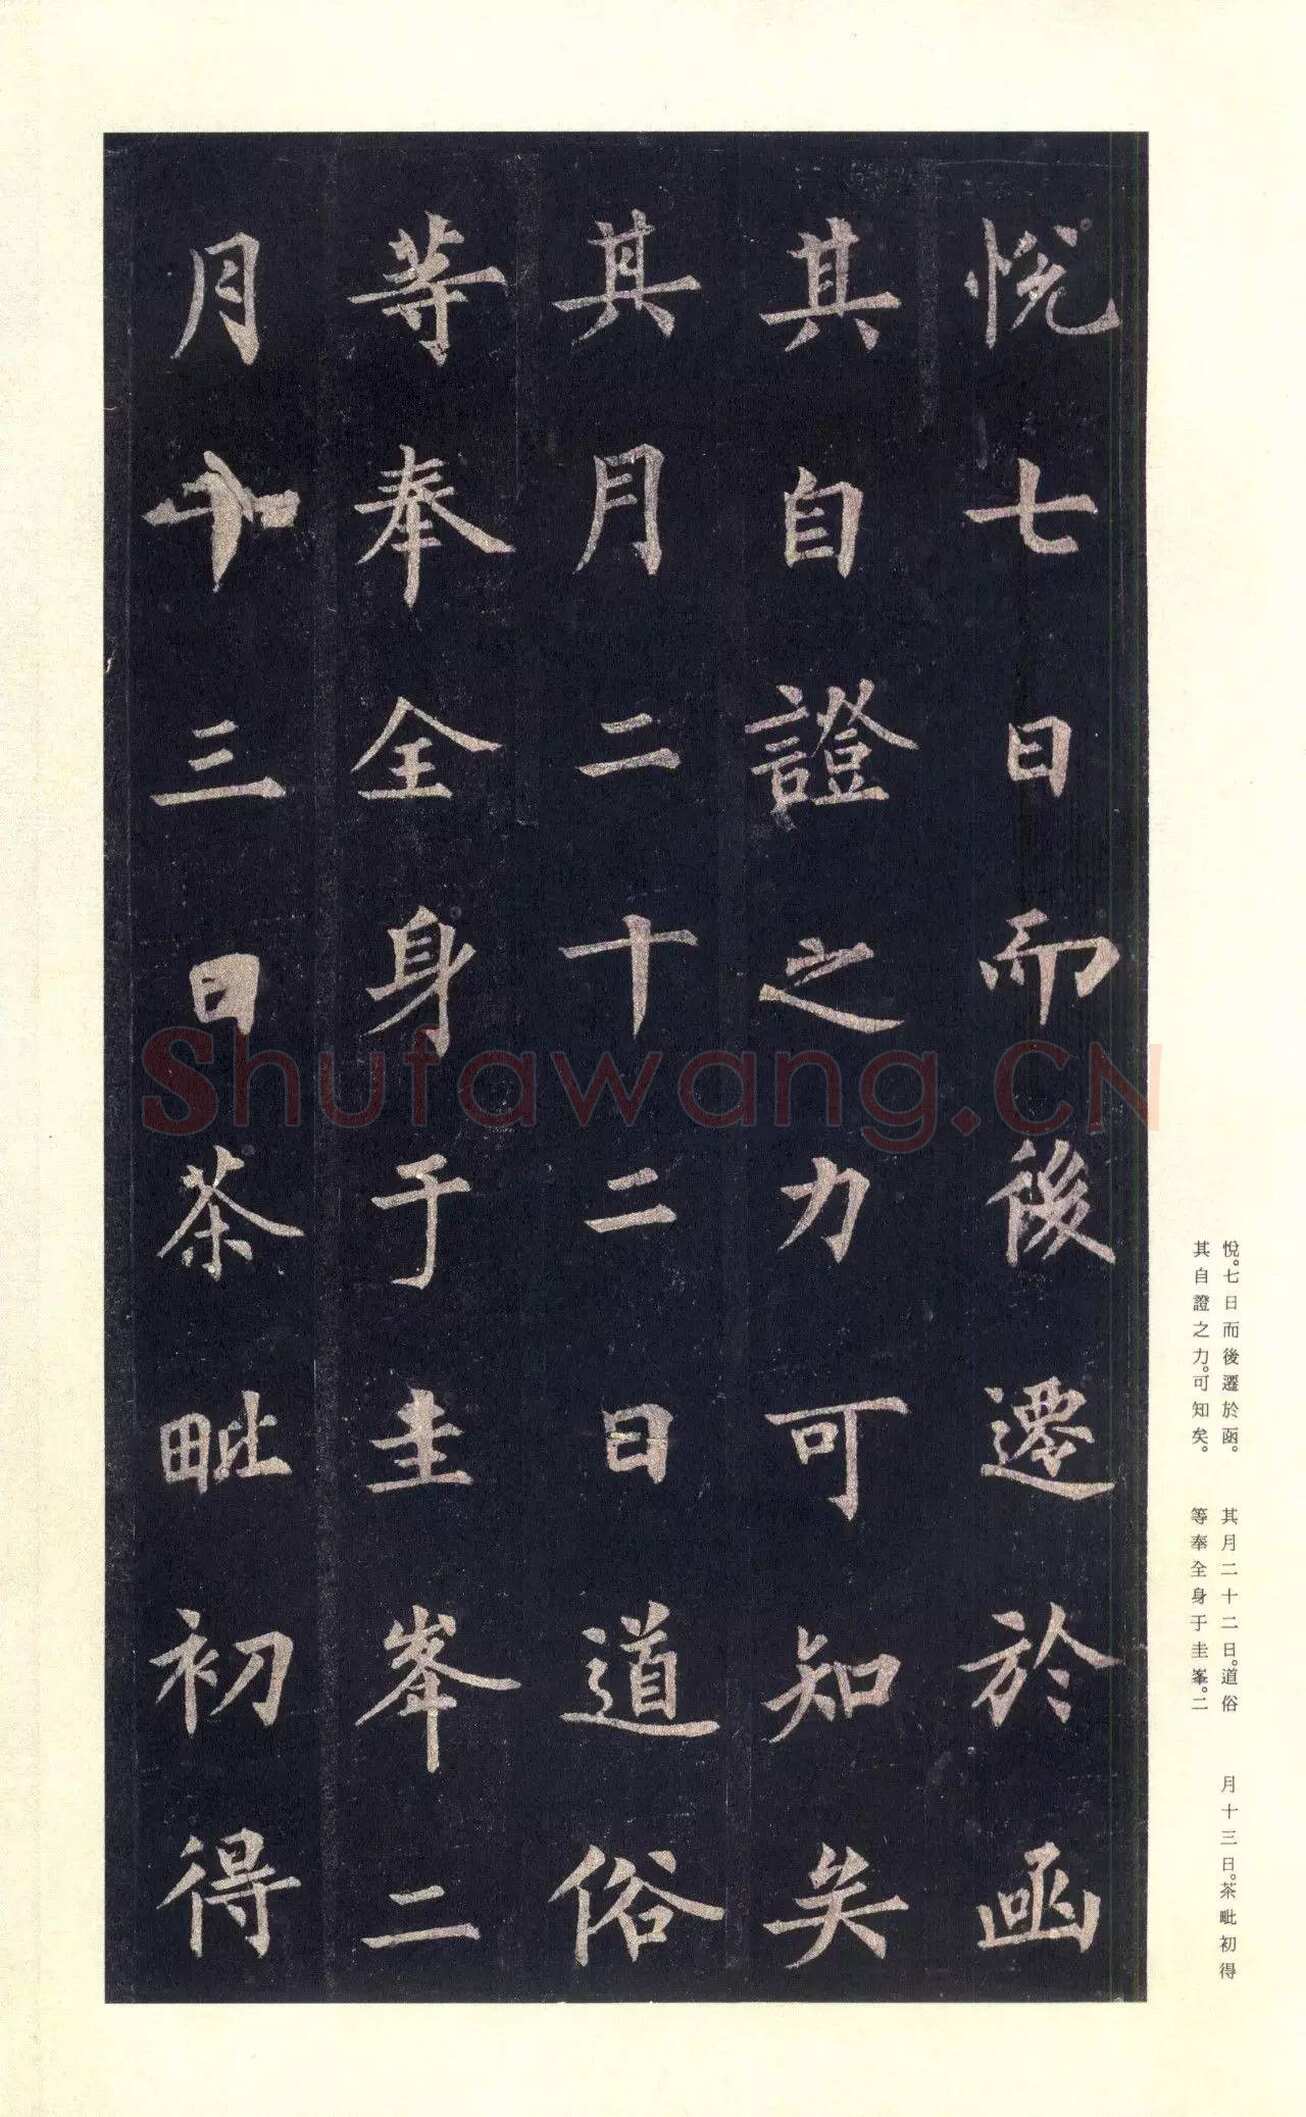 悅七日而後遷於函
其自證之力可知矣
其月二十二日道俗
等奉全身于圭峯二
月十三日荼毗初得
悅。七日而後遷於函。
其自證之力。可知矣。
其月二十二日。道俗
等奉全身于圭峯。二
月十三日。荼毗初得
Shufawang.CN